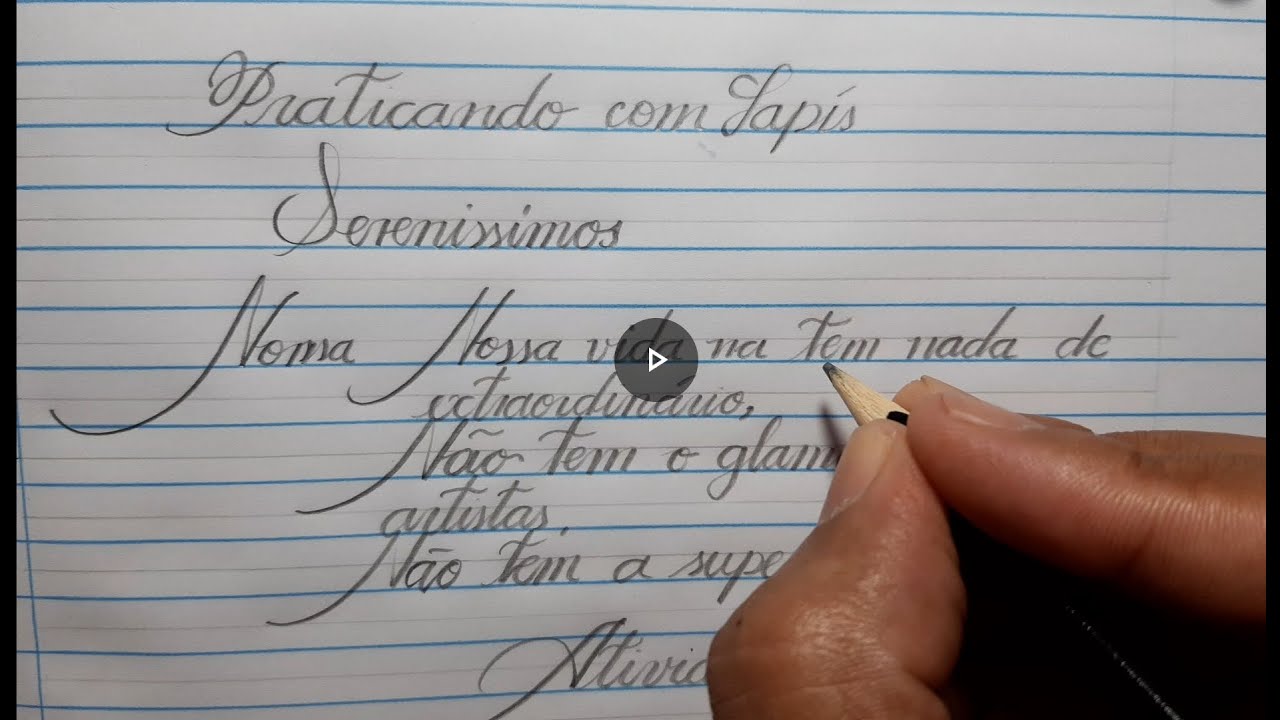 Praticando com Lapis
Serenissimos
Nossa vida na tem nada de
extraordinário,
Não tem o glam
artistas.
Não tem a supe
Ativid